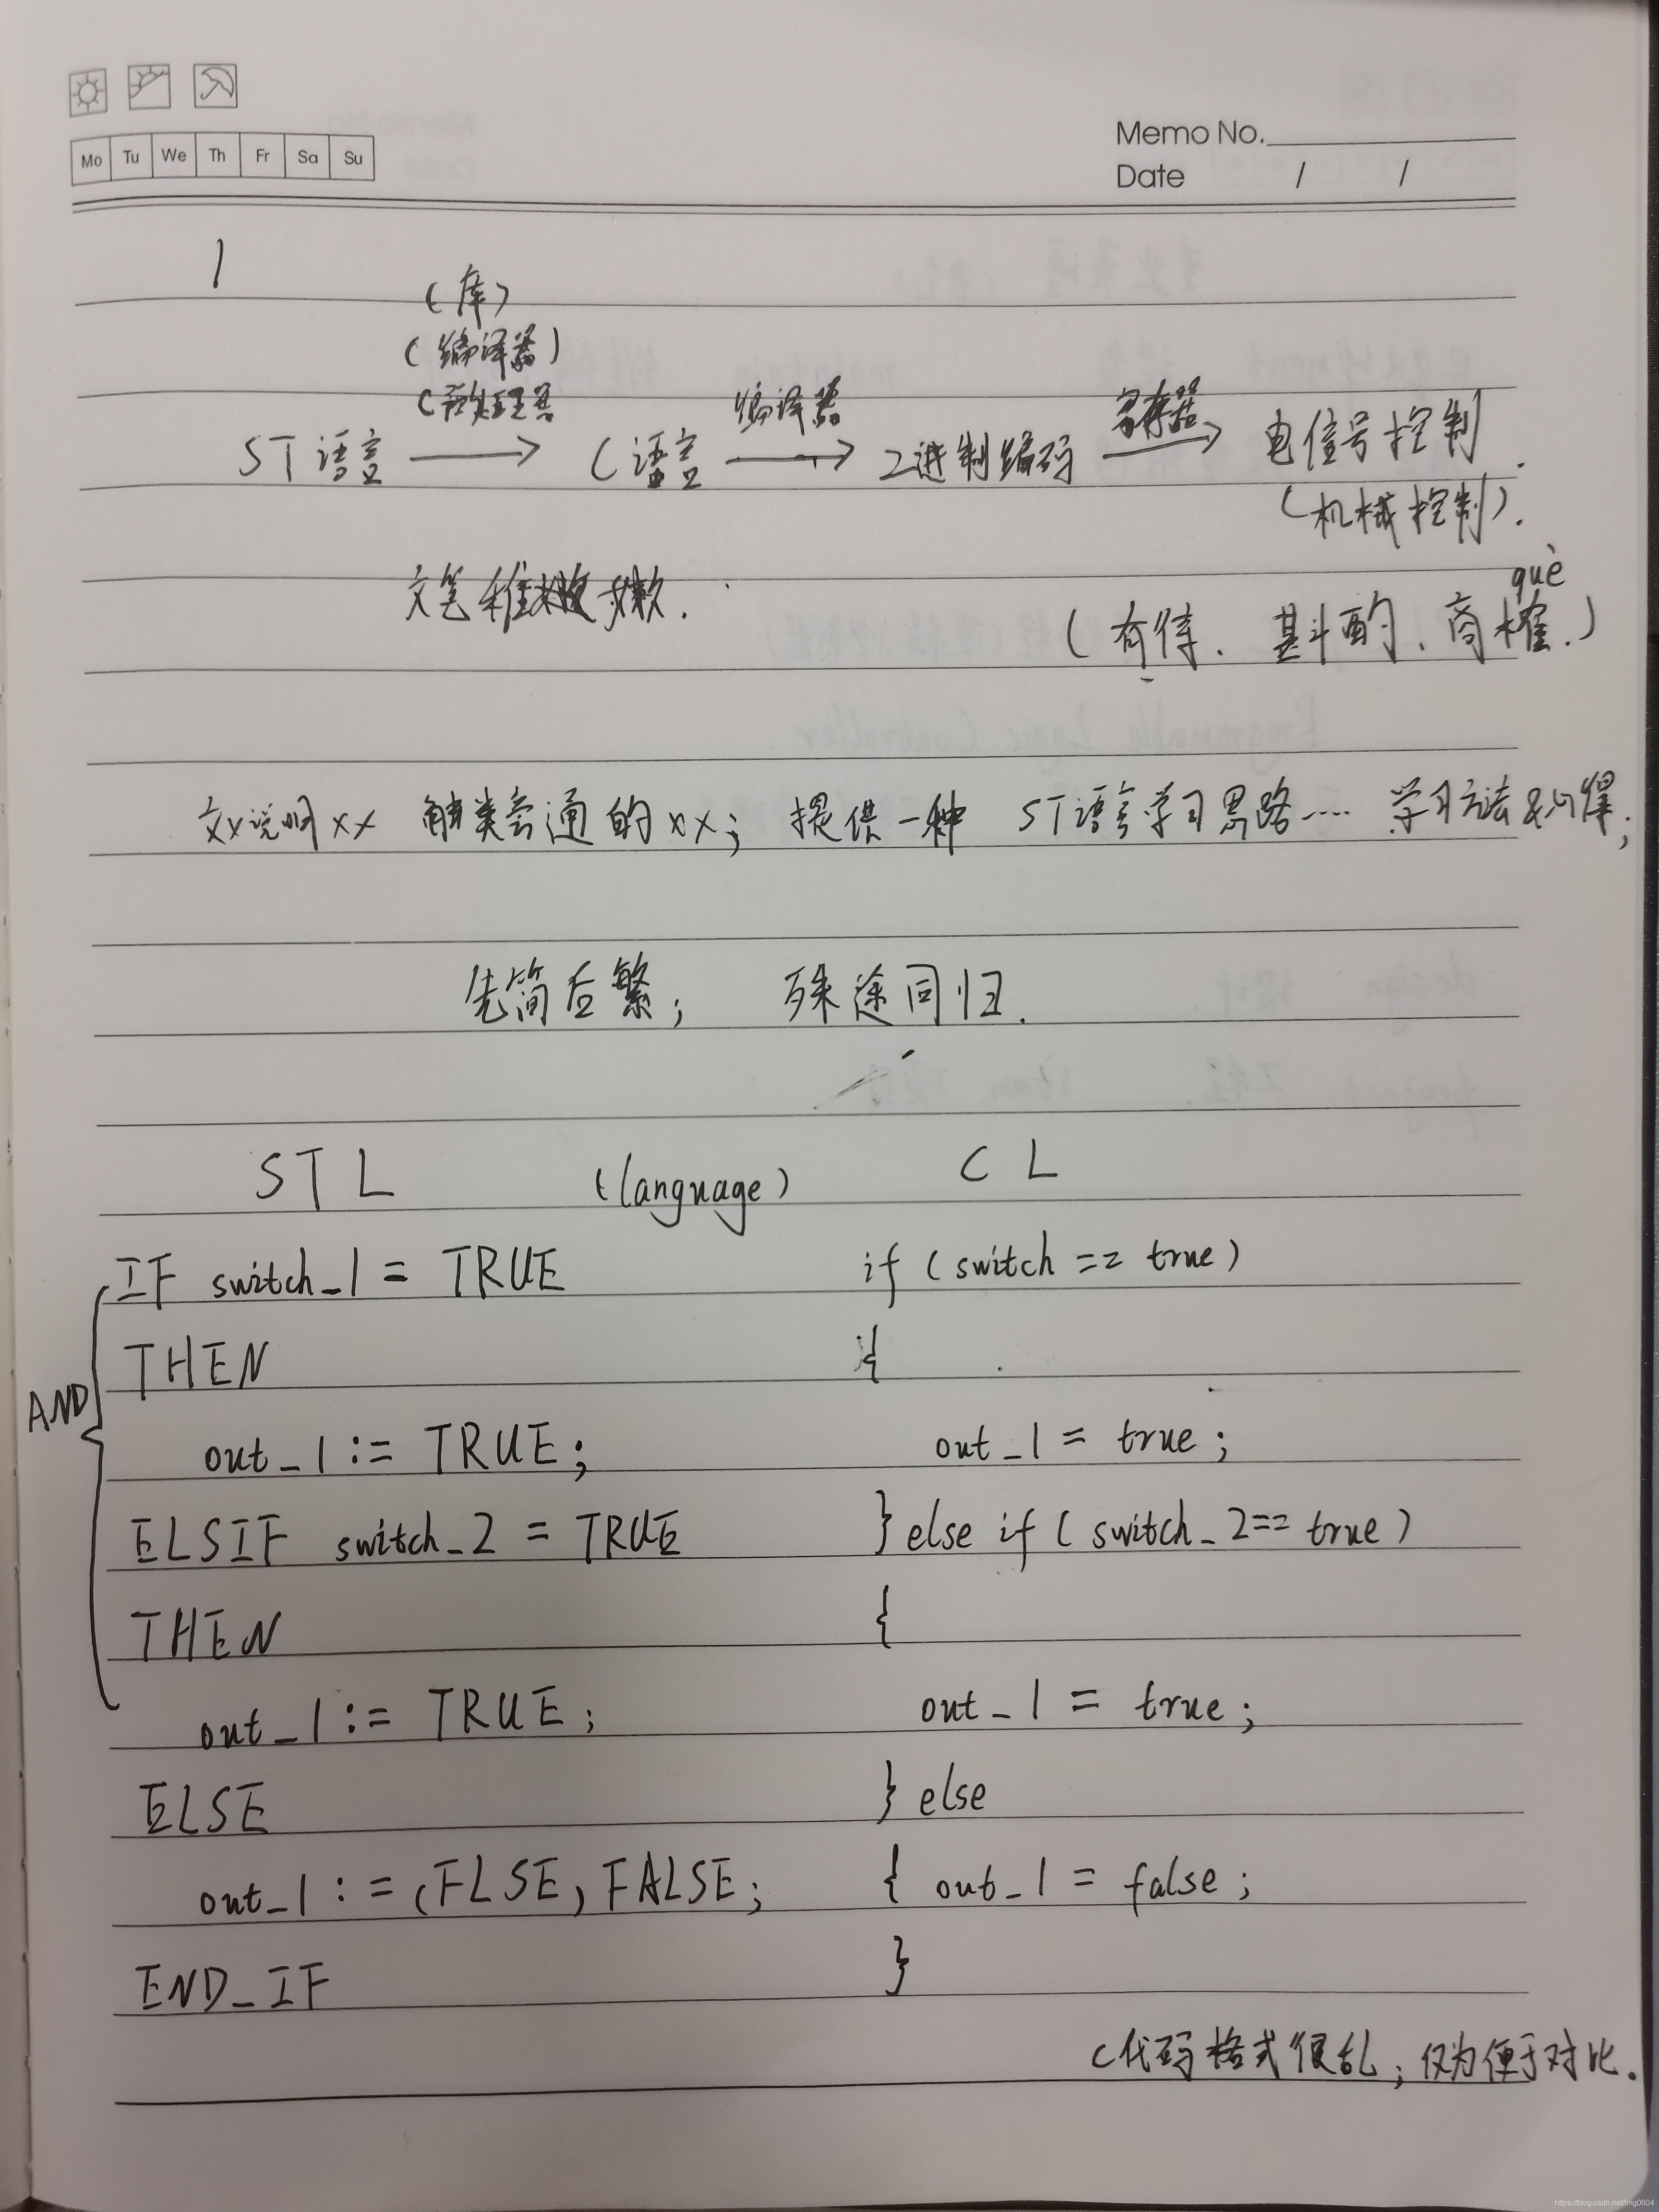 Mo Tu We Th Fr Sa Su
Memo No.
Date / /
1
(库)
(编译器)
C预处理器 编译器 寄存器
ST语言 C语言 2进制编码 电信号控制.
(机械控制).
文笔稚嫩.
què
(有待、斟酌、商榷.)
说明xx 触类旁通的xx; 提供一种 ST语言学习思路…… 学习方法&心得;
先简后繁; 殊途同归.
STL (language) CL
IF switch_1 = TRUE if (switch == true)
THEN {
AND
out_1 := TRUE; out_1 = true;
ELSIF switch_2 = TRUE } else if ( switch_2== true)
THEN {
out_1 := TRUE; out_1 = true;
ELSE } else
out_1 := (FLSE) FALSE; { out_1 = false;
END_IF }
C代码格式很乱; 仅为便于对比.
https://blog.csdn.net/ling0604